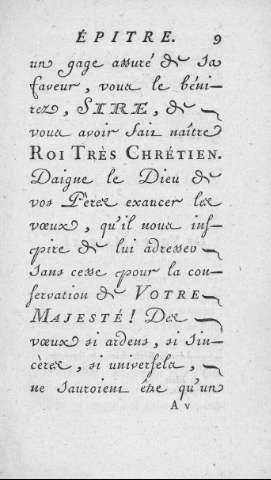 ÉPITRE. 9
un gage assuré de sa
faveur, vous le béni-
rez, SIRE, de
vous avoir fait naître
ROI TRÈS CHRÉTIEN.
Daigne le Dieu de
vos Pères exaucer les
vœux, qu'il nous ins-
pire de lui adresser
sans cesse pour la con-
servation de VOTRE
MAJESTÉ! Des
vœux si ardens, si sin-
cères, si universels,
ne sauroient être qu'un
A v